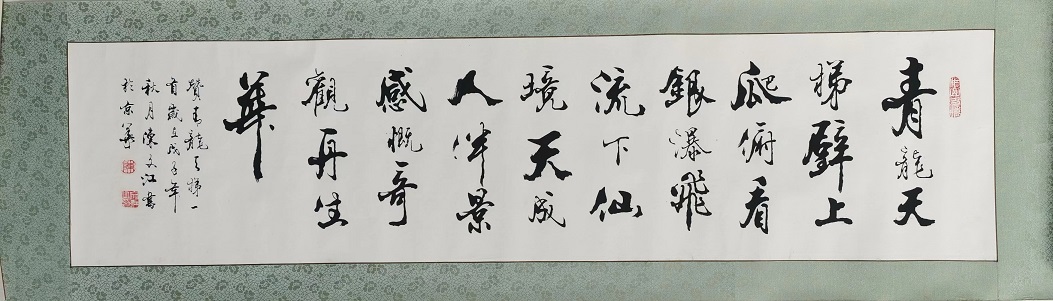 青龍天
梯壁上
爬俯看
銀瀑飛
流下仙
境天成
人伴景
感慨奇
觀再生
華
贊青龍天梯一
首歲在戊子年
秋月陳文江書
於京華